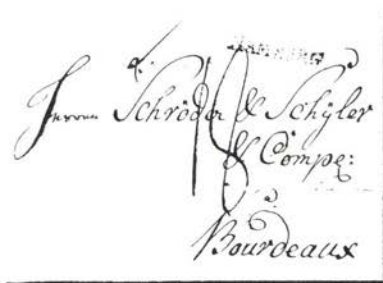 HAMBURG
Herren Schröder & Schÿler
& Compe:
18
Bourdeaux